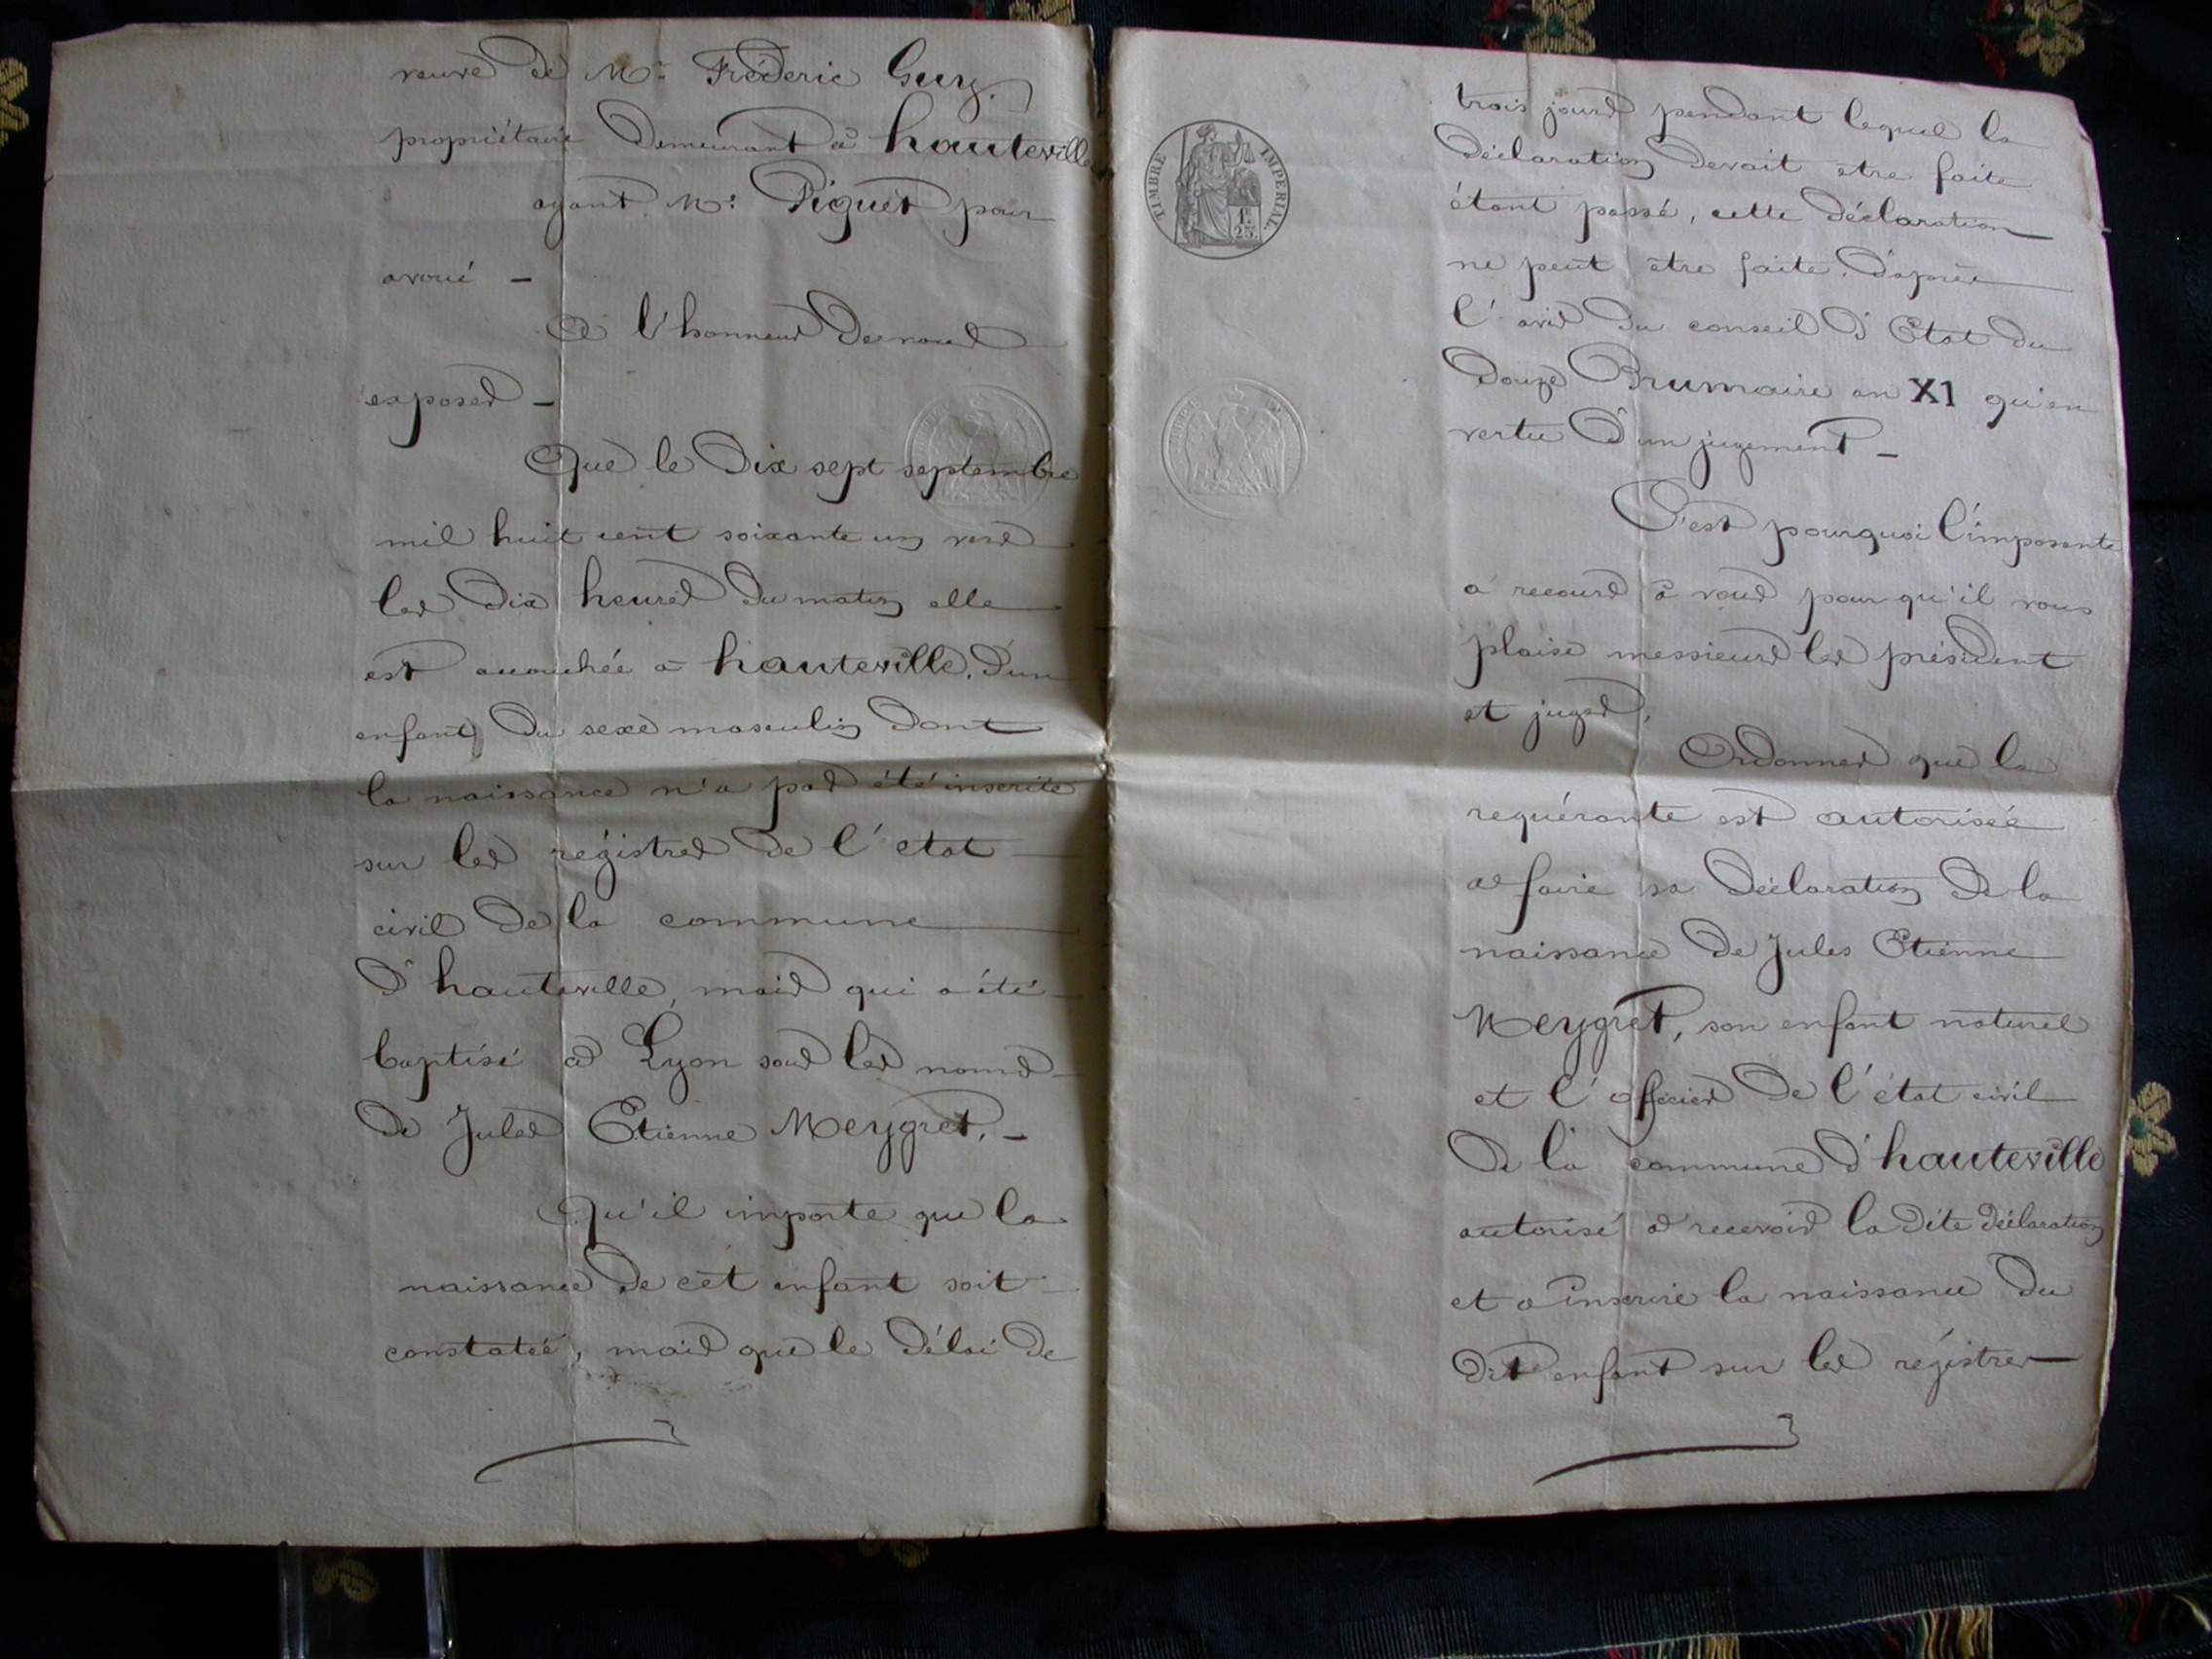 veuve de Mr. Fréderic Guy.
propriétaire demeurant à hauteville
ayant Me: Piguet pour
avoué -
A l'honneur de vous
exposer -
Que le dix sept septembre
mil huit cent soixante un vers
les dix heures du matin elle
est accouchée à hauteville, d'un
enfant du sexe masculin dont
la naissance n'a pas été inscrite
sur les régistres de l'état
civil de la commune
d'hauteville, mais qui a été
baptisé à Lyon sous les noms
de Jules Etienne Meygret. -
Qu'il importe que la
naissance de cet enfant soit
constatée, mais que le délai de
TIMBRE IMPERIAL
1F. 25.
trois jours pendant lequel la
déclaration devait être faite
étant passé, cette déclaration
ne peut être faite d'après
l'avis du conseil d'Etat du
douze Brumaire an XI qu'en
vertu d'un jugement -
C'est pourquoi l'exposante
a recours à vous pour qu'il vous
plaise messieurs les président
et juges,
Ordonner que la
requérante est autorisée
à faire sa déclaration de la
naissance de Jules Etienne
Meygret, son enfant naturel
et l'officier de l'état civil
de la commune d'hauteville
autorisé à recevoir la dite déclaration
et à inscrire la naissance du
dit enfant sur les régistres